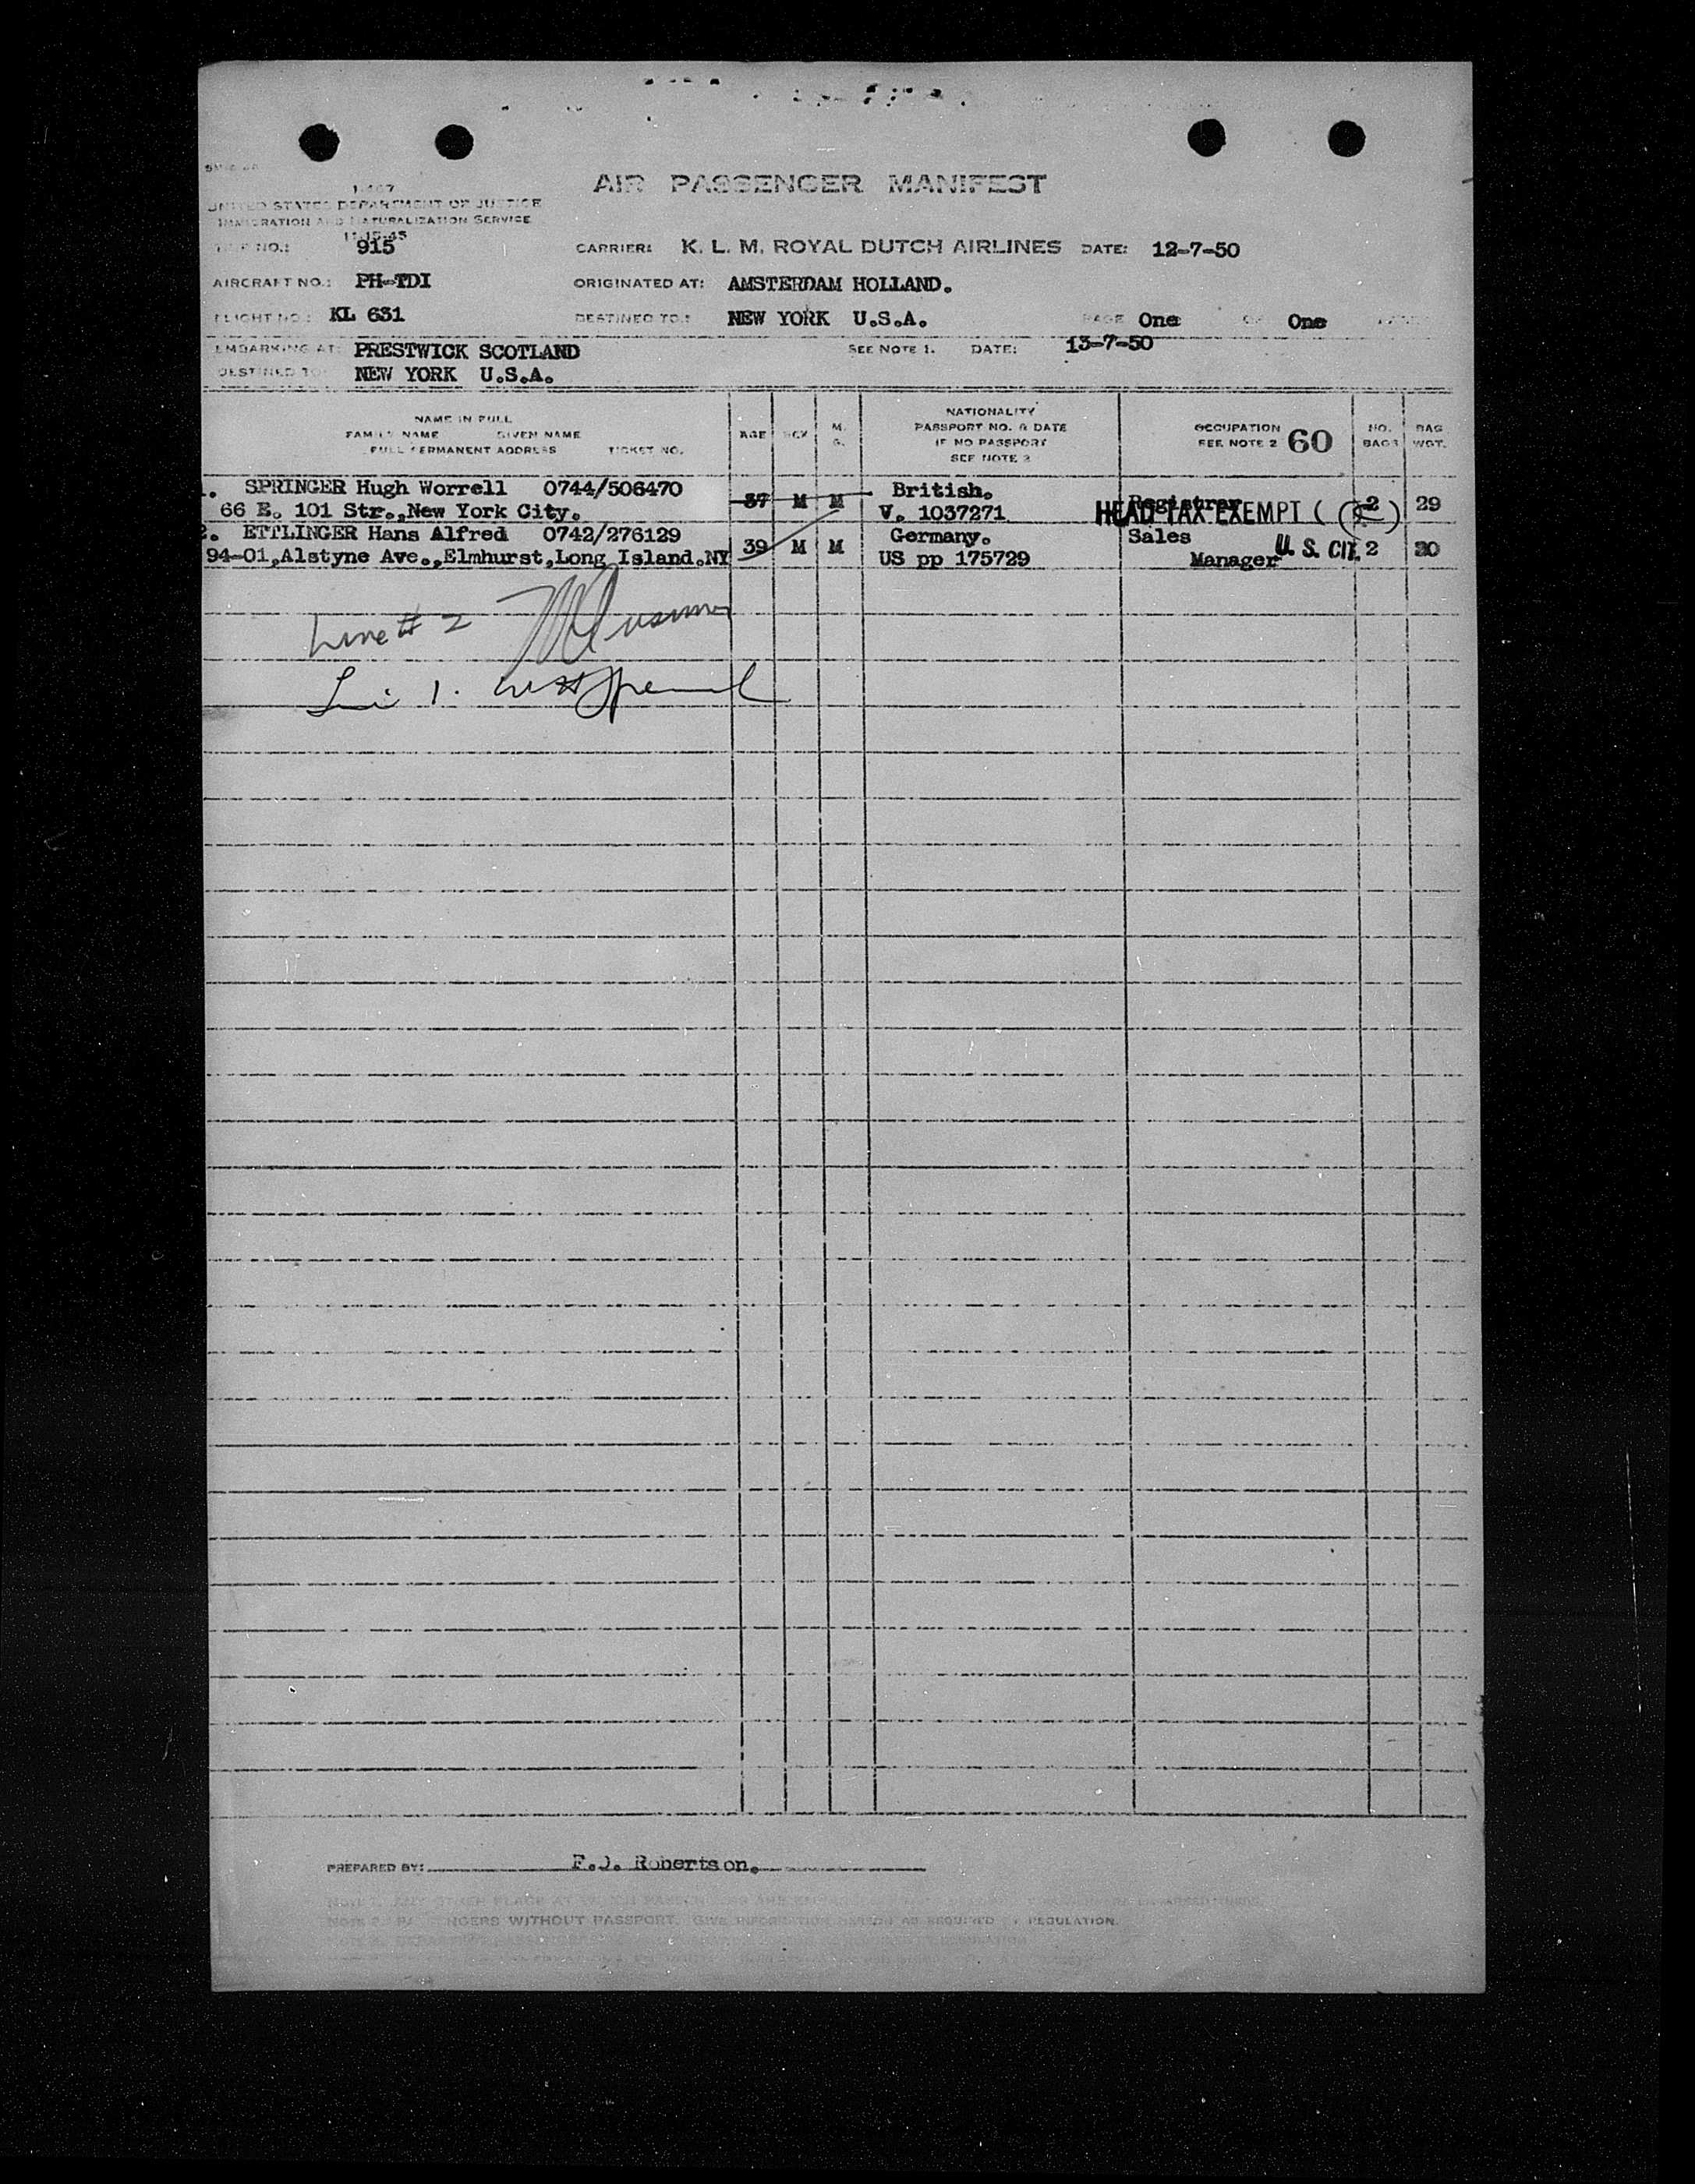 AIR PASSENGER MANIFEST
UNITED STATES DEPARTMENT OF JUSTICE
IMMIGRATION AND NATURALIZATION SERVICE
TRIP NO.: 915 CARRIER: K. L. M. ROYAL DUTCH AIRLINES DATE: 12-7-50
AIRCRAFT NO.: PH-TDI ORIGINATED AT: AMSTERDAM HOLLAND.
FLIGHT NO.: KL 631 DESTINED TO: NEW YORK U.S.A. PAGE One OF One
EMBARKING AT: PRESTWICK SCOTLAND SEE NOTE 1. DATE: 13-7-50
DESTINED TO NEW YORK U.S.A.
NAME IN FULL
FAMILY NAME GIVEN NAME
FULL PERMANENT ADDRESS TICKET NO.
AGE SEX M. S.
NATIONALITY
PASSPORT NO. & DATE
IF NO PASSPORT
SEE NOTE 2
OCCUPATION
SEE NOTE 2 60
NO. BAGS
BAG WGT.
1. SPRINGER Hugh Worrell 0744/506470 37 M M British. Registrar 2 29
66 E. 101 Str.,New York City. V. 1037271 HEAD TAX EXEMPT ( )
2. ETTLINGER Hans Alfred 0742/276129 39 M M Germany. Sales U. S. CIT. 2 30
94-01,Alstyne Ave.,Elmhurst,Long Island.NY US pp 175729 Manager
Line # 2
Li 1.
PREPARED BY: F.J. Robertson.
WITHOUT PASSPORT. GIVE INFORMATION HEREON AS REQUIRED BY REGULATION.